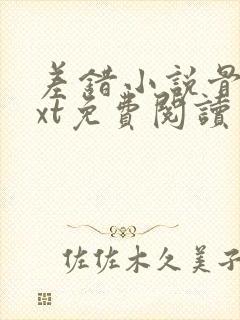 差錯小説最
xt免費閱讀
佐佐木久美子